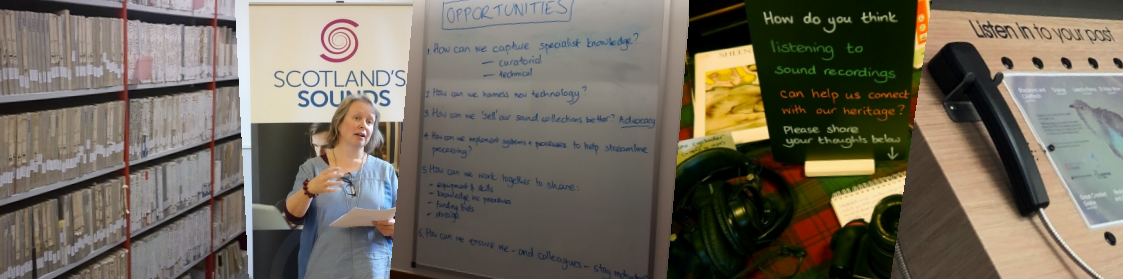 SCOTLAND'S
SOUNDS
OPPORTUNITIES
1. How can we capture specialist knowledge?
— curatorial
— technical
2. How can we harness new technology?
3. How can we 'sell' our sound collections better? Advocacy
4. How can we implement systems + processes to help streamline
processing?
5. How can we work together to share:
- equipment & skills
- knowledge inc procedures
- funding bids
- storage
6. How can we ensure we - and colleagues - stay motivated
How do you think
listening to
sound recordings
can help us connect
with our heritage?
Please share
your thoughts below
Listen in to your past